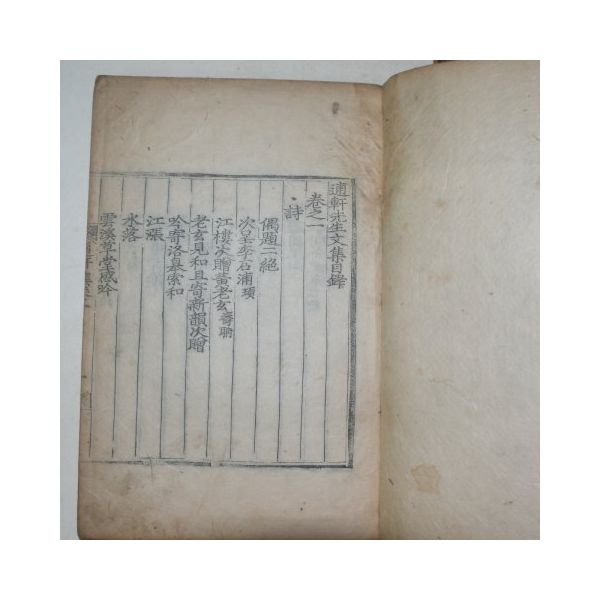 軒先生文集目錄
卷之一
詩
偶題二絕
次呈李石浦
江樓次贈黃老玄
老玄見和且寄新韻次贈
吟寄洛墓索和
江漲
水落
雲溪草堂感吟